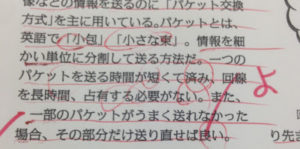 像などの情報を送るのに「パケット交換
方式」を主に用いている。パケットとは、
英語で「小包」「小さな束」。情報を細
かい単位に分割して送る方法だ。一つの
パケットを送る時間が短くて済み、回線
を長時間、占有する必要がない。また、
一部のパケットがうまく送れなかった
場合、その部分だけ送り直せば良い。
よ
り先